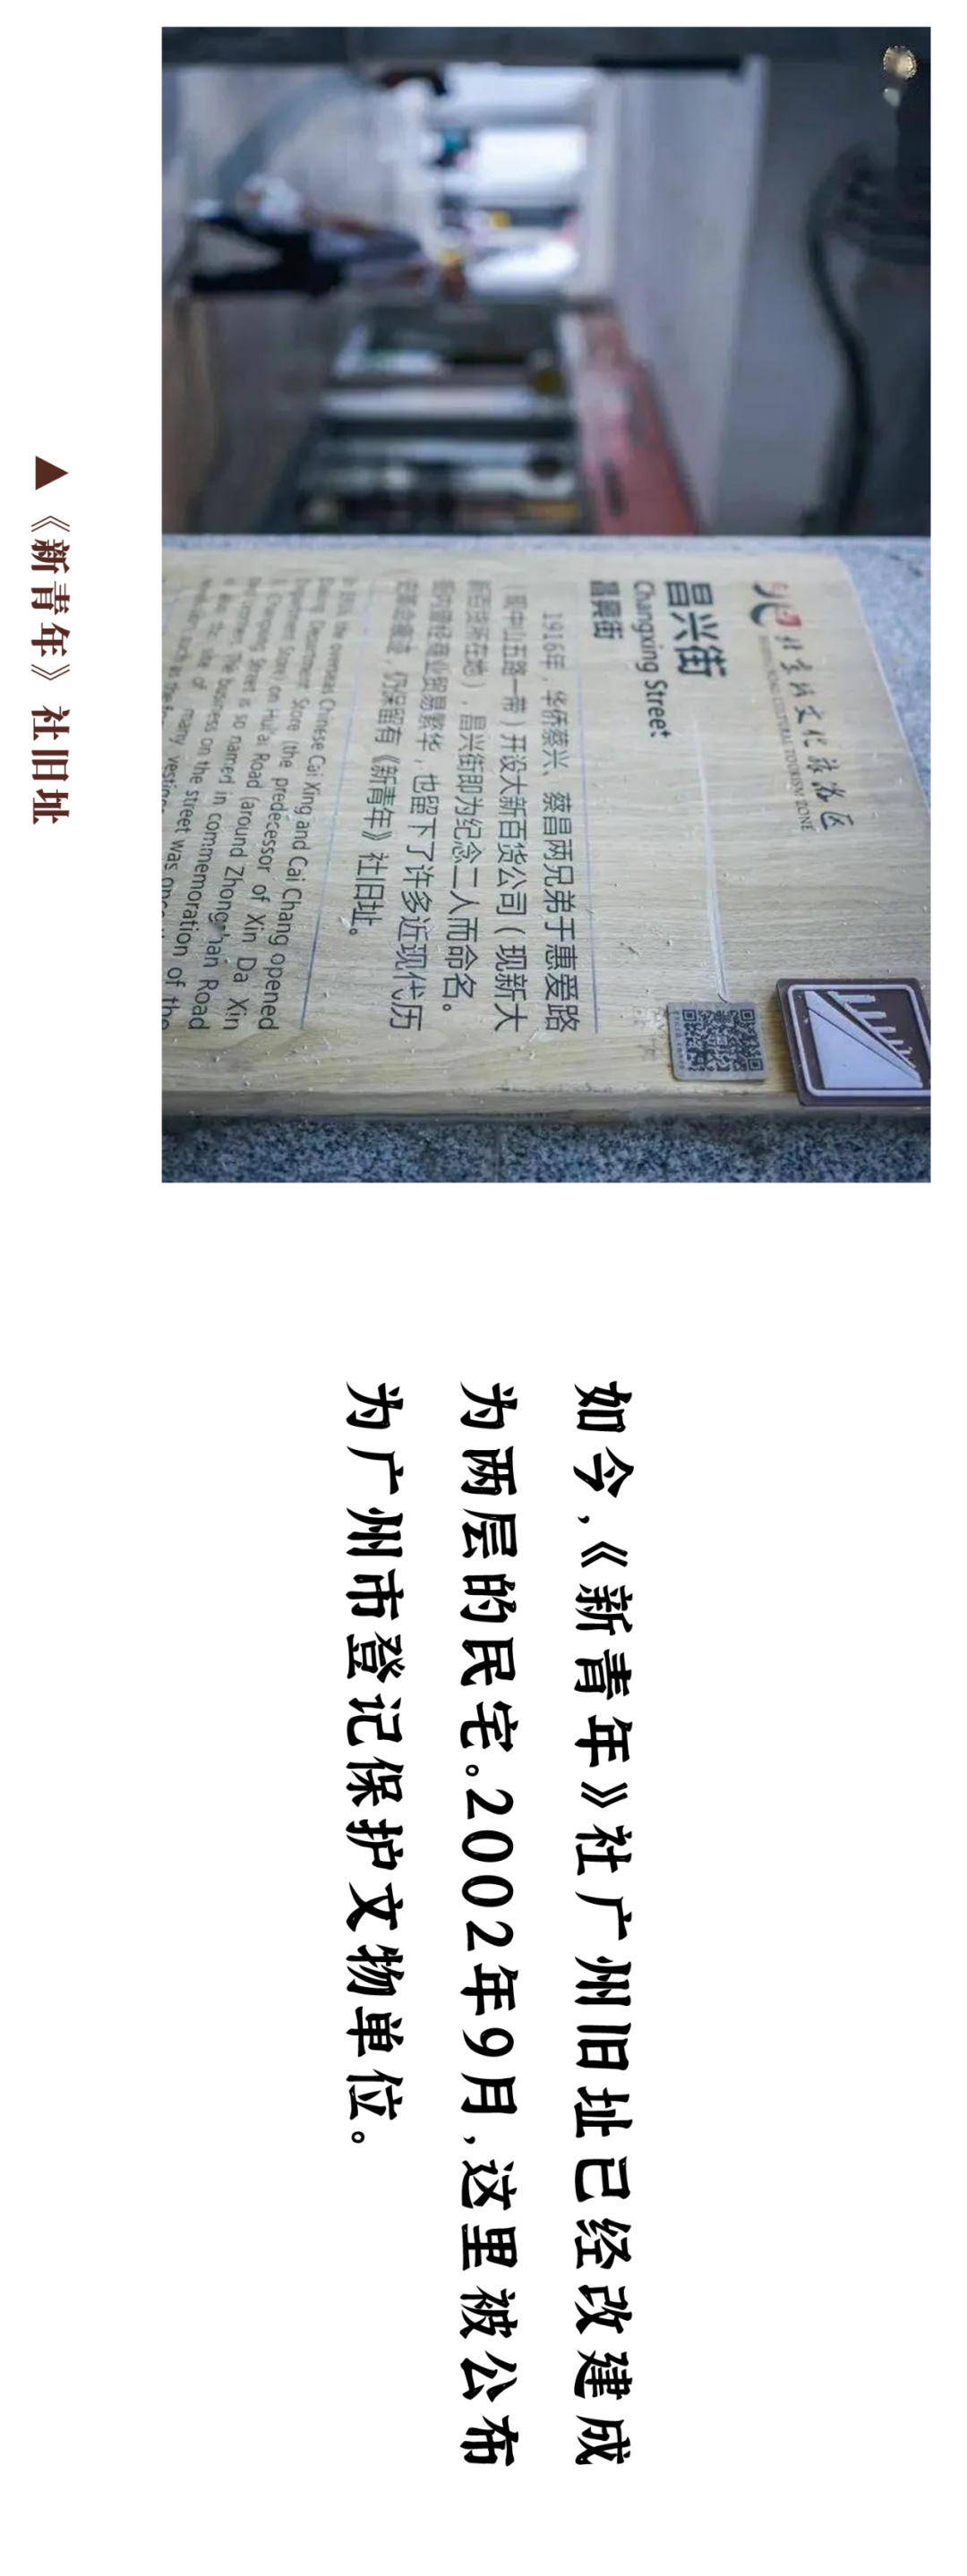 北京路文化旅游区
BEIJING ROAD CULTURAL TOURISM ZONE
昌兴街
Changxing Street
昌興街
1916年，华侨蔡兴、蔡昌两兄弟于惠爱路
（现中山五路一带）开设大新百货公司（现新大
新百货所在地），昌兴街即为纪念二人而命名。
街内曾经商业贸易繁华，也留下了许多近现代历
仍保留有《新青年》社旧址。
the overseas Chinese Cai Xing and Cai Chang opened
Department Store (the predecessor of Xin Da Xin
Department Store) on Hui'ai Road (around Zhongshan Road
Changxing Street is so named in commemoration of the
business on the street was once
the site of many vestiges
▲《新青年》社旧址
如今，《新青年》社广州旧址已经改建成
为两层的民宅。2002年9月，这里被公布
为广州市登记保护文物单位。